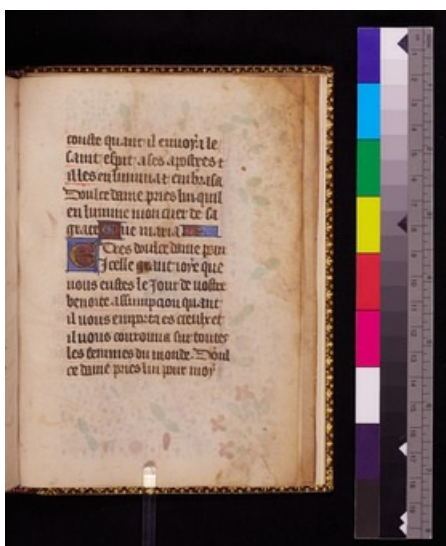 couste quant il enuoya le
saint esprit a ses apostres et
il les enlumina et embrasa
Doulce dame pries luy quil
en lumine mon cuer de sa
grace Aue maria
E Tres doulce dame pour
Icelle grant ioye que
vous eustes le Jour de vostre
benoite assumpcion quant
il vous emporta es cieulx et
il vous couronna sur toutes
les femmes du monde Doul
ce dame pries luy pour moy